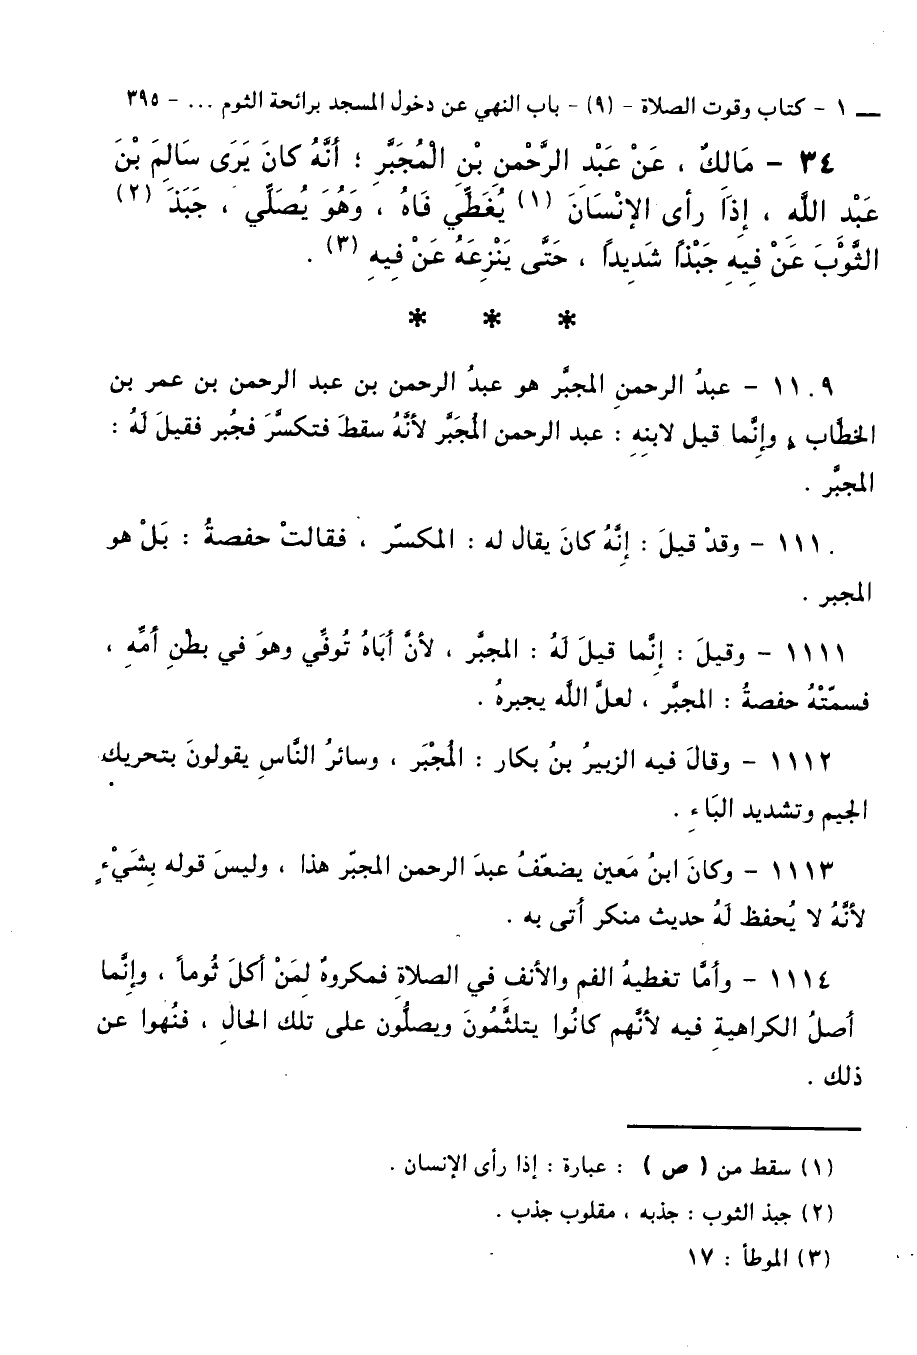 ــ ١ - كتاب وقوت الصلاة - (٩) - باب النهي عن دخول المسجد برائحة الثوم ... - ٣٩٥
٣٤ - مَالكٌ ، عَنْ عَبْدِ الرَّحْمنِ بْنِ الْمُجَبَّرِ ؛ أَنَّهُ كانَ يَرَى سَالِمَ بْنَ
عَبْدِ اللَّه ، إِذَا رأى الإنْسَانَ (١) يُغَطِّي فَاهُ ، وَهُوَ يُصَلِّي ، جَبَذَ (٢)
الثَّوْبَ عَنْ فِيهِ جَبْذاً شَدِيداً ، حَتَّى يَنْزِعَهُ عَنْ فِيهِ (٣) .
* * *
١١٠٩ - عبدُ الرحمنِ المجبَّر هو عبدُ الرحمن بن عبد الرحمن بن عمر بن
الخطَّاب ، وإِنَّما قيل لابنِهِ : عبد الرحمن المُجَبَّر لأنَّهُ سقطَ فتكسَّرَ فجُبر فقيلَ لَهُ :
المجبَّر .
١١١٠ - وقدْ قيلَ : إِنَّهُ كانَ يقال له : المكسّر ، فقالتْ حفصةُ : بَلْ هو
المجبر .
١١١١ - وقيلَ : إِنَّما قيلَ لَهُ : المجبَّر ، لأنَّ أَبَاهُ تُوفِّي وهوَ في بطْنِ أُمِّه ،
فسمّتْهُ حفصةُ : المجبَّر ، لعلَّ اللَّه يجبرهُ .
١١١٢ - وقالَ فيه الزبيرُ بنُ بكار : المُجْبَر ، وسائرُ النَّاسِ يقولونَ بتحريك
الجيم وتشديد البَاءِ .
١١١٣ - وكانَ ابنُ مَعين يضعّفُ عبدَ الرحمن المجبّر هذا ، وليسَ قوله بِشَيْءٍ
لأنَّهُ لا يُحفظ لَهُ حديث منكر أَتى به .
١١١٤ - وأمَّا تغطيهُ الفم والأنف في الصلاةِ فمكروهٌ لمَنْ أكلَ ثُوماً ، وإنَّما
أصلُ الكراهيةِ فيه لأنَّهم كانُوا يتلثَّمُونَ ويصلُّون على تلك الحالِ ، فنُهوا عن
ذلك .
(١) سقط من ( ص ) : عبارة : إذا رأى الإنسان .
(٢) جبذ الثوب : جذبه ، مقلوب جذب .
(٣) الموطأ : ١٧